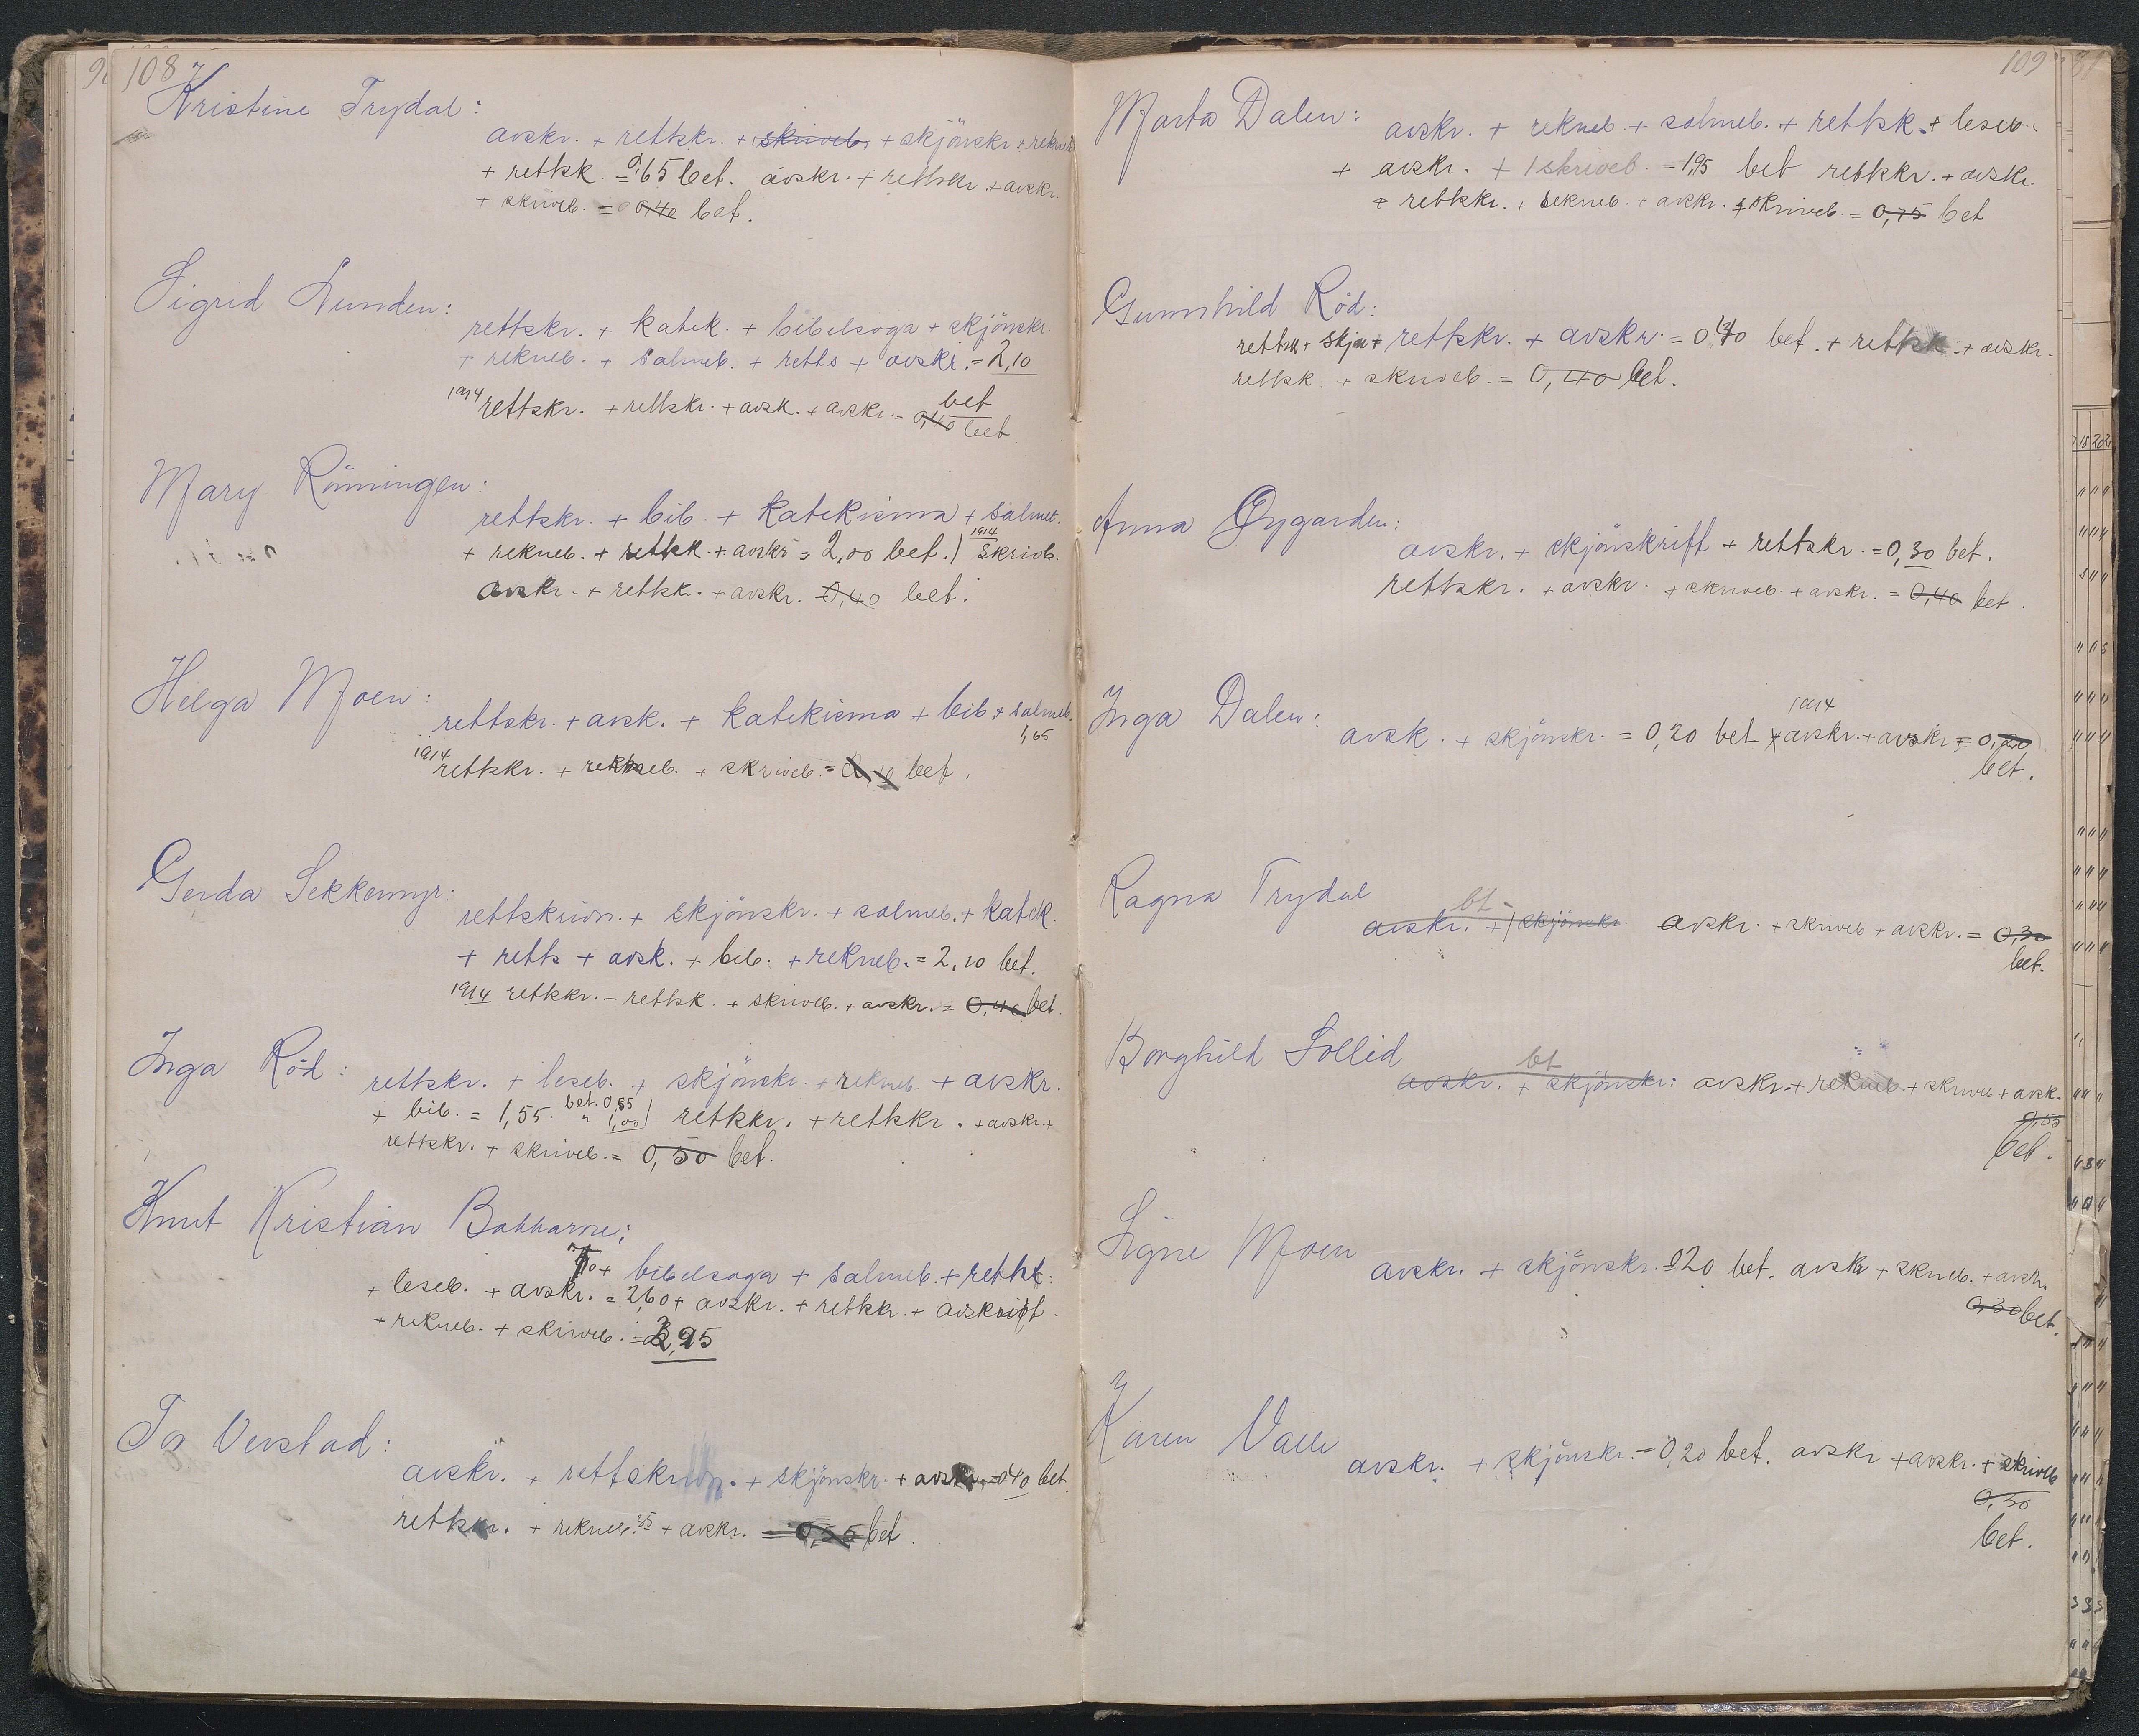 108
Kristine Trydal:
avskr. + rettskr. + skriveb. + skjönskr. + rekneb.
+ rettsk. = 0,65 bet. avskr. + rettskr. + avskr.
+ skriveb. = 0,40 bet.
Sigrid Lunden:
rettskr. + katek. + bibelsoga + skjönskr.
+ rekneb. + salmeb. + retts + avskr. = 2,10
bet
1914 rettskr. + rettskr. + avsk. + avskr. = 0,40 bet
Mary Rönningen:
rettskr. + bib. + katekisma + salmeb.
+ rekneb. + rettsk. + avskr = 2,00 bet. | 1914 skrivb.
avskr. + rettsk. + avskr. 0,40 bet.
Helga Moen:
rettskr. + avsk. + katekisma + bib + salmeb.
1,65
1914 rettskr. + rekneb. + skriveb. = bet.
Gerda Sekkemyr:
rettskrivn. + skjönskr. + salmeb. + katek.
+ retts + avsk. + bib. + rekneb. = 2,10 bet.
1914 rettskr. - rettsk. + skriveb. + avskr. = 0,40 bet
Inga Röd:
rettskr. + leseb. + skjönskr. + rekneb. + avskr.
+ bib. = 1,55. bet. 0,85 " 1,00 | rettskr. + rettskr. + avskr. +
rettskr. + skriveb. = 0,50 bet.
Knut Kristian
+ bibelsoga + salmeb. + rettsk.
+ leseb. + avskr. = 2,60 + avskr. + rettskr. + avskrift.
+ rekneb. + skriveb. =
Tor Verstad:
avskr. + rettskrivn. + skjönskr. + avskr. = 0,40 bet.
rettskr. + rekneb. 35 + avskr. = bet.
109
Marta Dalen:
avskr. + rekneb. + salmeb. + rettsk. + leseb.
+ avskr. + 1 skriveb. - 1,95 bet rettskr. + avskr.
+ rettskr. + rekneb. + avskr. + skriveb. = 0,75 bet
Gunnhild Röd:
rettskr + skjøn + rettskr. + avskr. = 0,40 bet. + rettsk. + avskr.
rettsk. + skriveb. = 0,40 bet.
Anna Øygarden:
avskr. + skjönskrift + rettskr. = 0,30 bet.
rettskr. + avskr. + skriveb. + avskr. = 0,40 bet.
Inga Dalen:
1914
avsk. + skjönskr. = 0,20 bet + avskr. + avskr = 0,20
bet.
Ragna Trydal
bt
avskr. + skjönskr. avskr. + skriveb + avskr. = 0,30
bet.
Borghild Sollid
bt
avskr. + skjönskr: avskr. + rekneb. + skriveb + avsk.
bet.
Signe Moen
avskr. + skjönskr. = 020 bet. avskr + skriveb. + avskr.
0,30 bet.
Karen Valle
avskr. + skjönskr. = 0,20 bet. avskr + avskr. + skriveb
0,30
bet.